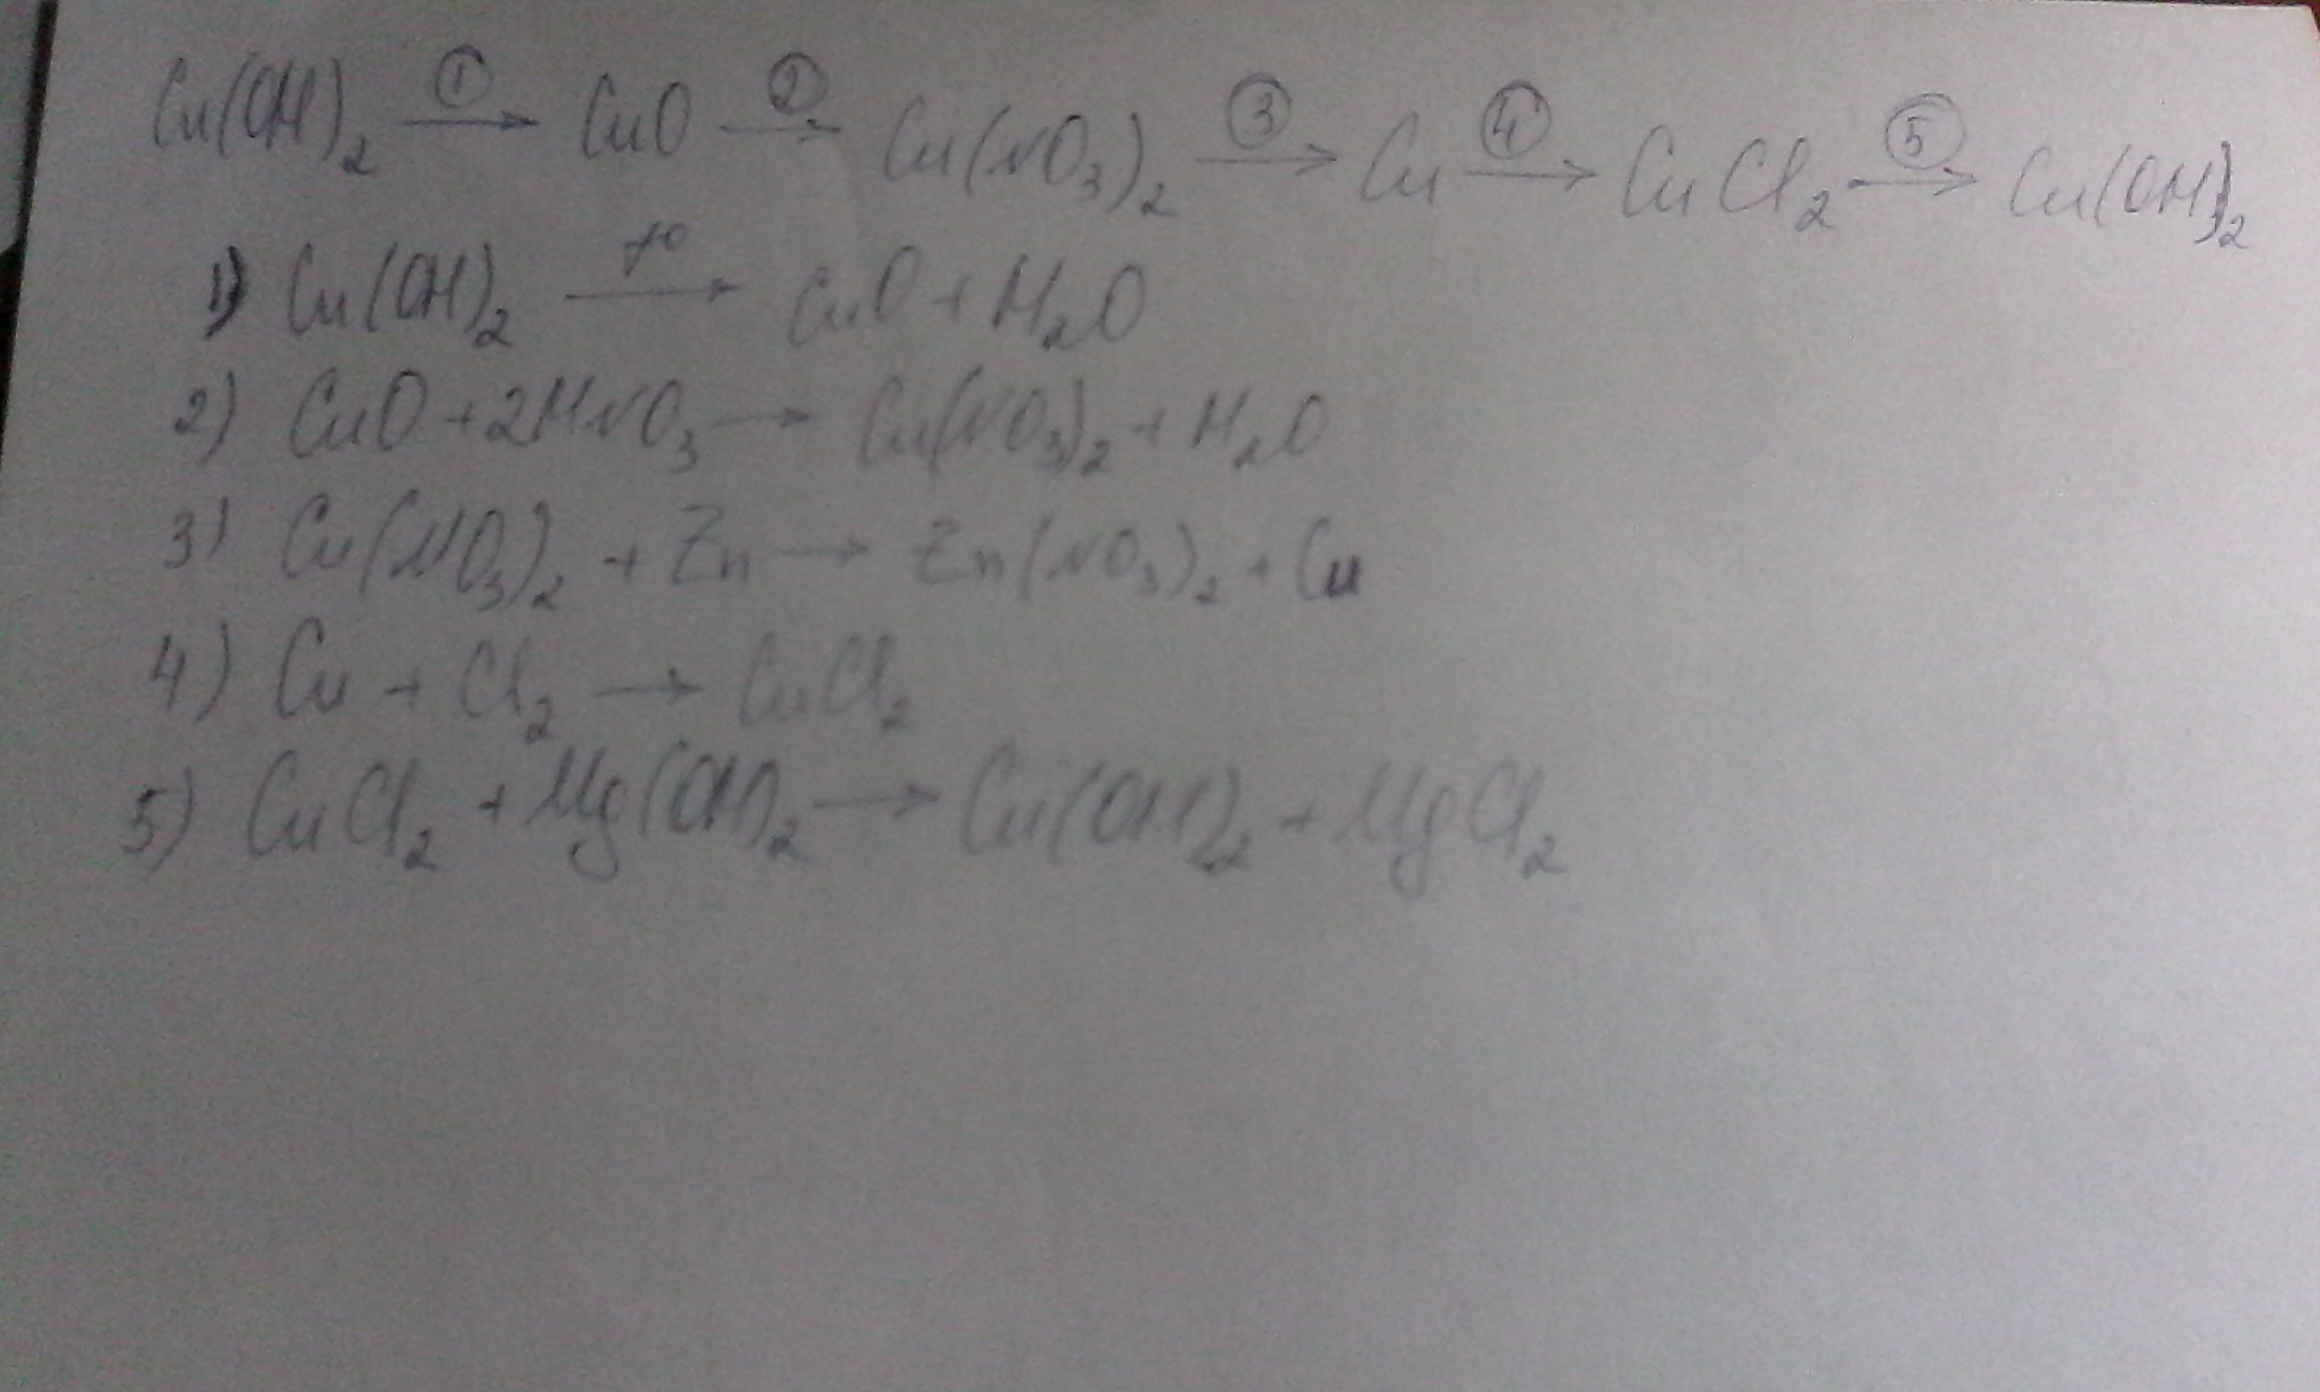 Cu(OH)₂ —①→ CuO —②→ Cu(NO₃)₂ —③→ Cu —④→ CuCl₂ —⑤→ Cu(OH)₂
1) Cu(OH)₂ —t°→ CuO + H₂O
2) CuO + 2HNO₃ → Cu(NO₃)₂ + H₂O
3) Cu(NO₃)₂ + Zn → Zn(NO₃)₂ + Cu
4) Cu + Cl₂ → CuCl₂
5) CuCl₂ + Mg(OH)₂ → Cu(OH)₂ + MgCl₂